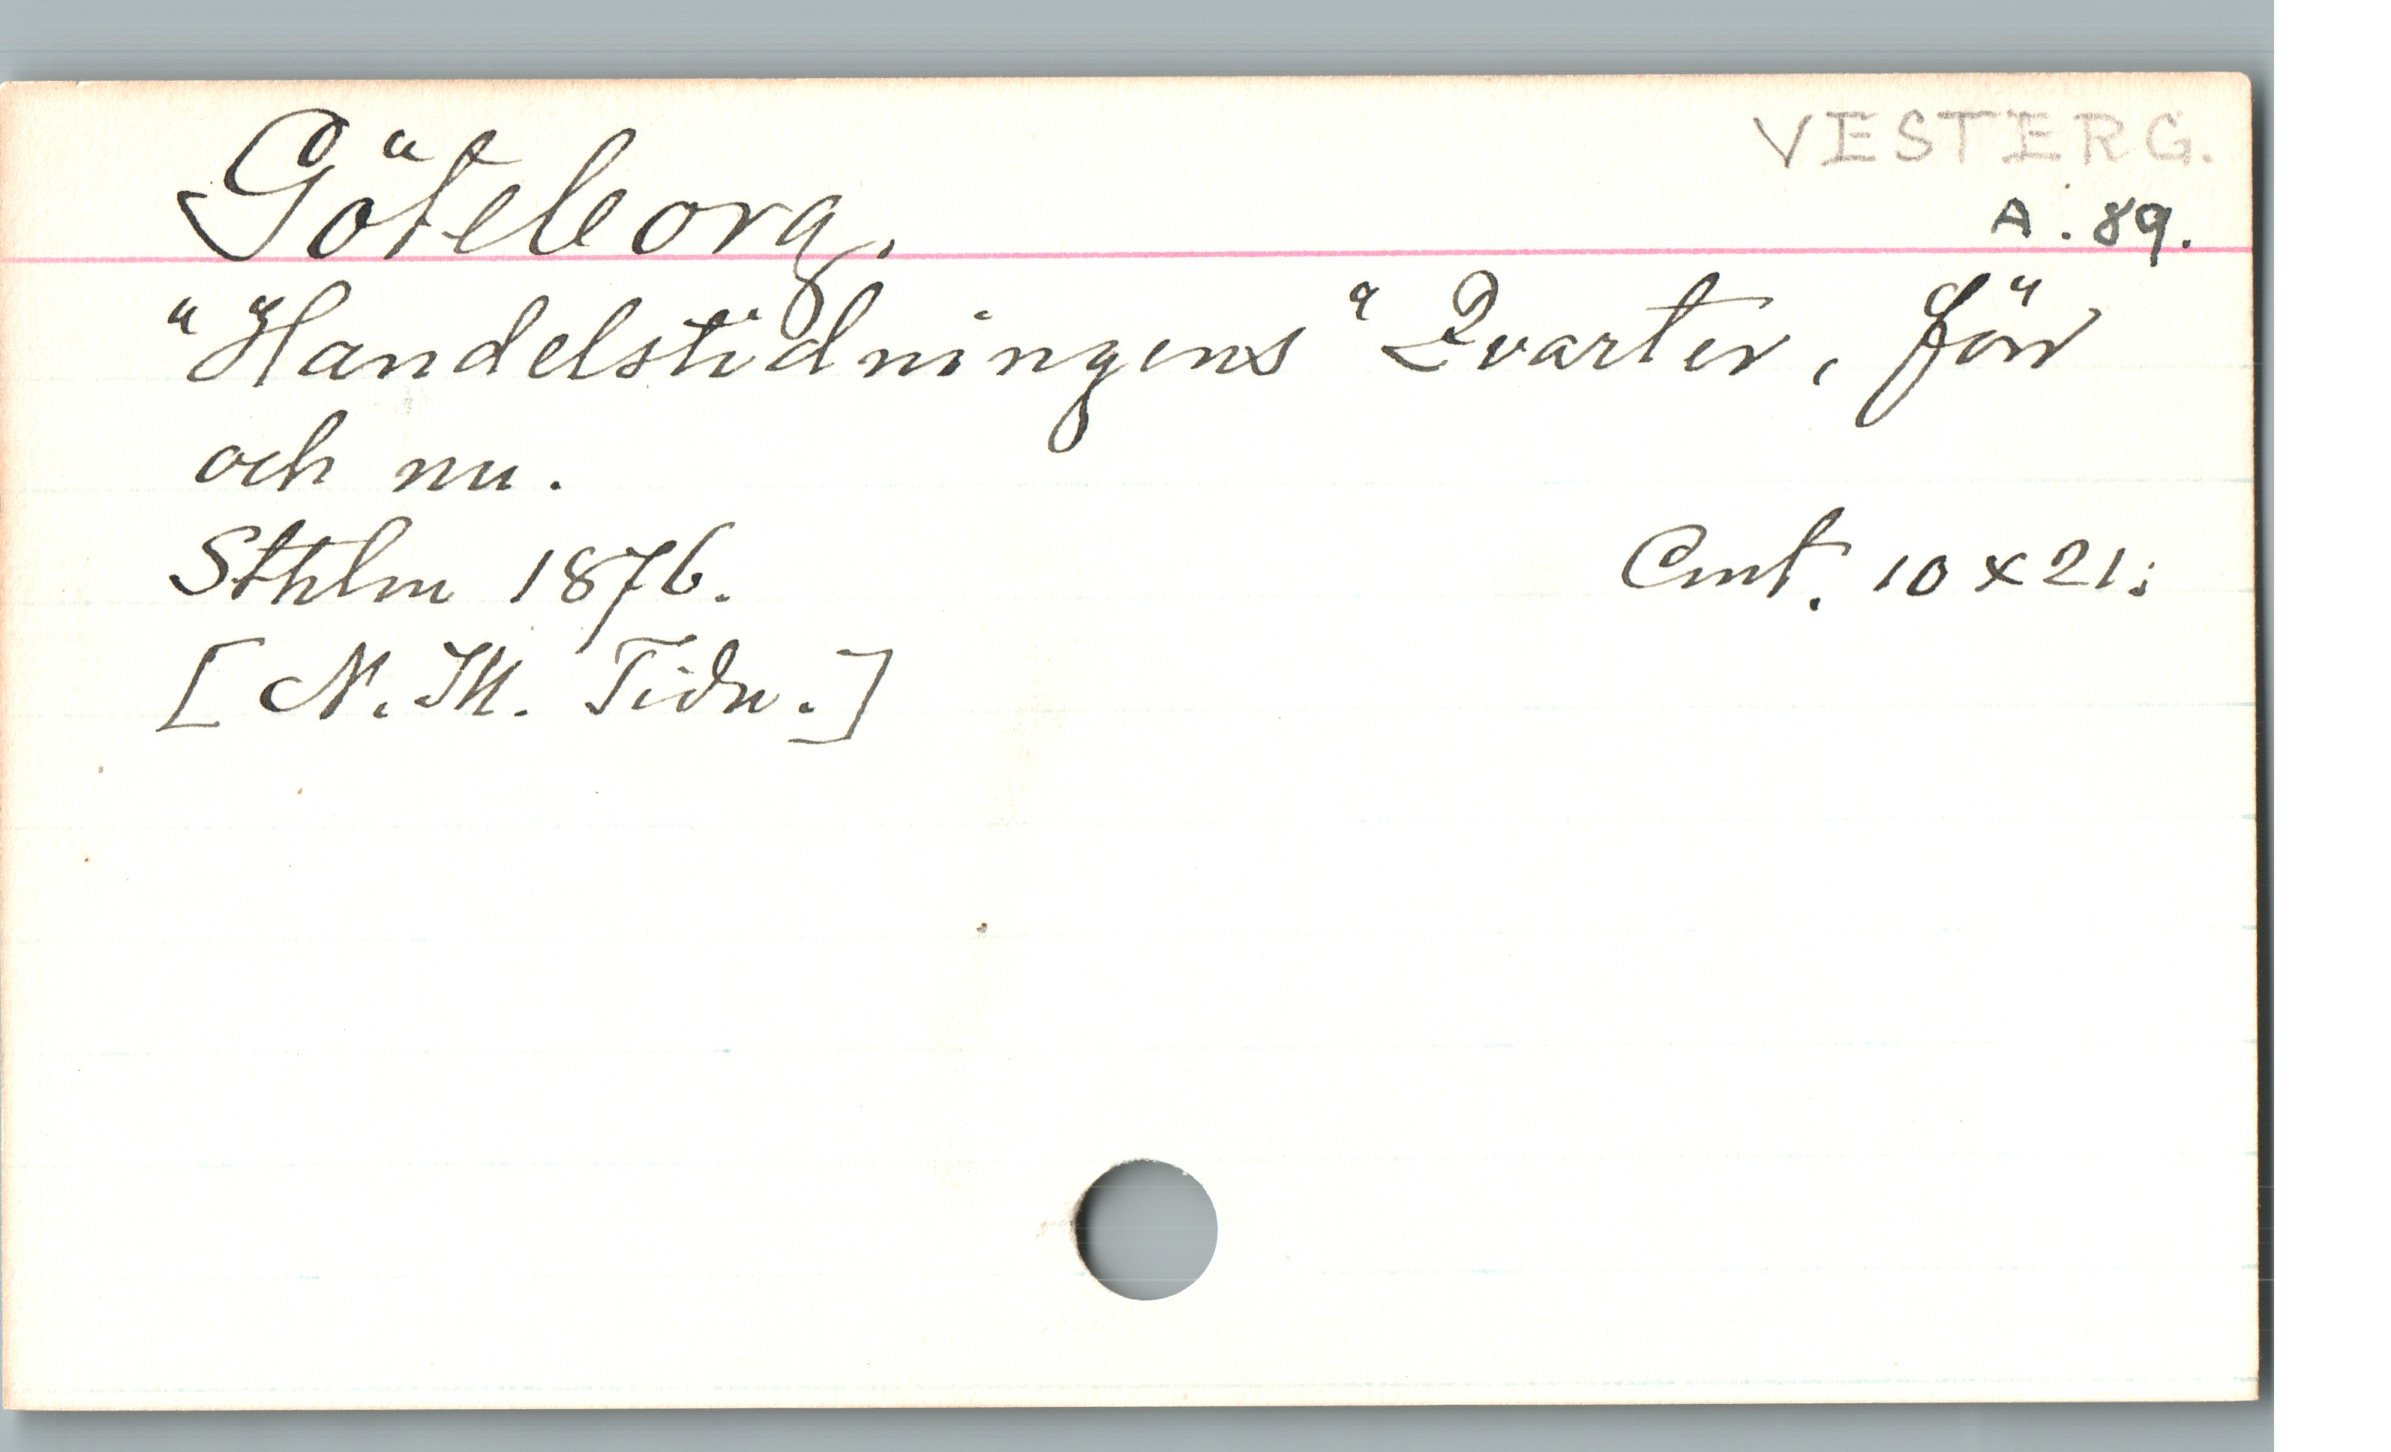 VESTERG.
Göteborg. A. 89.
"Handelstidningens" Qvarter, förr
och nu.
Sthlm 1876. Cmt. 10 x 21.
[N. Ill. Tidn.]